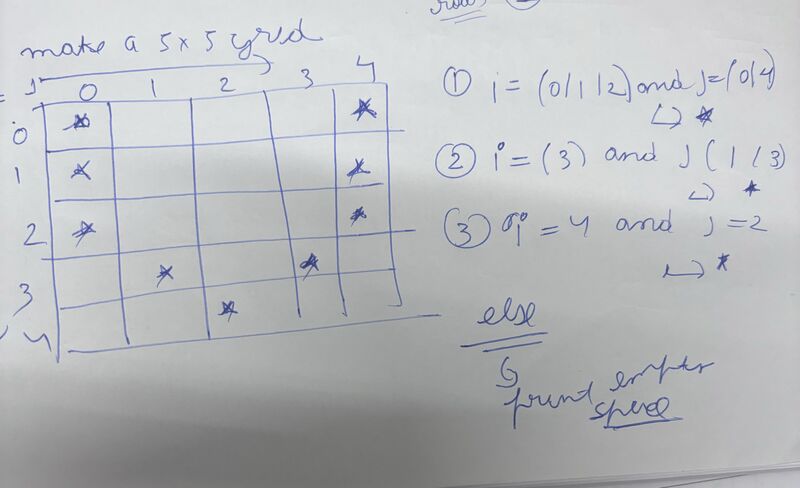 make a 5x5 grid
j
0 1 2 3 4
i
0 * *
1 * *
2 * *
3 * *
4 *
① i = (0/1/2) and j = (0/4)
↳ *
② i = (3) and j (1/3)
↳ *
③ i = 4 and j = 2
↳ *
else
↳ print empty
space